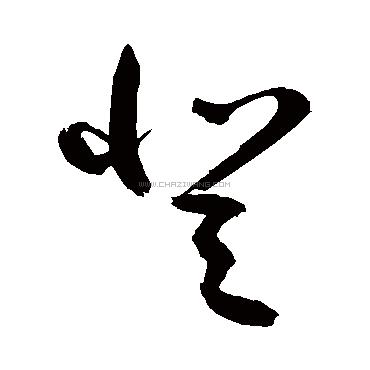 怪
WWW.CHAZIWANG.COM